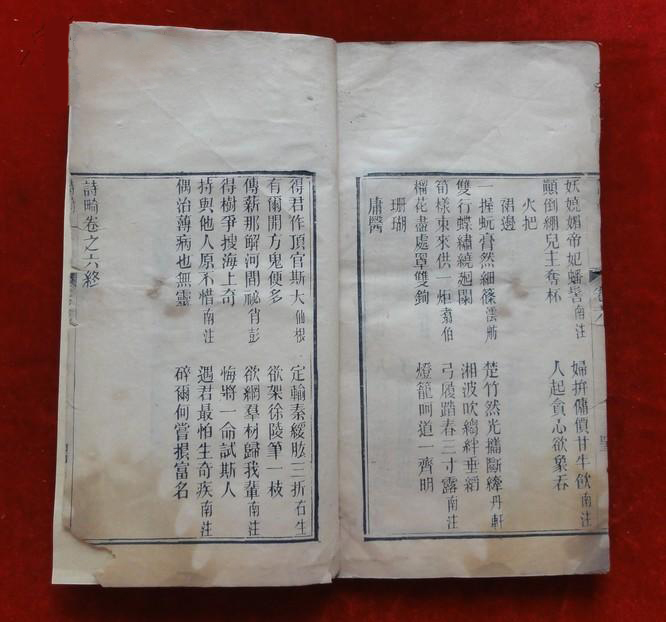 妖嬈媚帝妃蟠髻南注　婦拚傭償甘牛飲南注
顛倒綳兒主奪杯　人起貪心欲象吞
火把
裙邊
一握蚖膏然細篠澐舫　楚竹然光攜斷縴丹軒
雙行蝶繡繞迴闌　湘波吹縐絆垂縚
筍樣束來供一炬翥伯　弓履踏春三寸露南注
榴花盡處罩雙鉤　燈籠呵道一齊明
珊瑚
庸醫
得君作頂官斯大仙根　定輸秦緩肱三折右生
有爾開方鬼便多　欲架徐陵筆一枝
傳薪那解河間祕肖彭　欲網羣材歸我輩南注
得樹爭搜海上奇　悔將一命試斯人
持與他人原不惜南注　遇君最怕生奇疾南注
偶治薄病也無靈　碎爾何嘗損富名
詩畸卷之六終